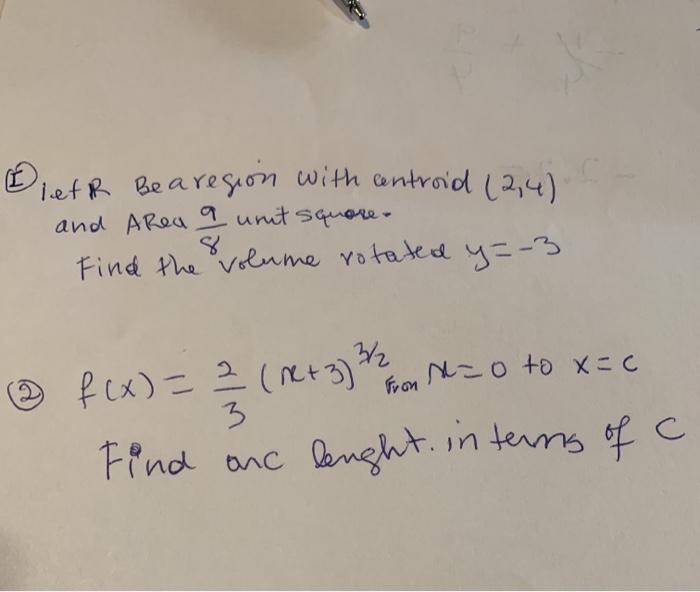 ① let R Be a region with centroid (2,4)
and ARea 9/8 unit square.
Find the volume rotated y=-3
② f(x) = 2/3 (x+3)^3/2 from x=0 to x=c
Find arc lenght. in terms of c